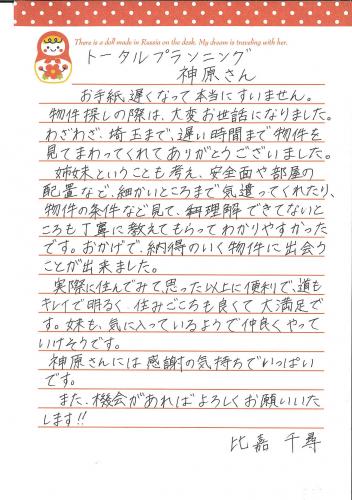 There is a doll made in Russia on the desk. My dream is traveling with her.
トータルプランニング
神原さん
お手紙、遅くなって本当にすいません。
物件探しの際は、大変お世話になりました。
わざわざ、埼玉まで、遅い時間まで物件を
見てまわってくれてありがとうございました。
姉妹ということも考え、安全面や部屋の
配置など、細かいところまで気遣ってくれたり、
物件の条件など見て、私理解できてないと
ころも丁寧に教えてもらってわかりやすかった
です。おかげで、納得のいく物件に出会う
ことが出来ました。
実際に住んでみて、思った以上に便利で、道も
キレイで明るく、住みごこちも良くて大満足で
す。妹も、気に入っているようで仲良くやって
いけそうです。
神原さんには感謝の気持ちでいっぱい
です。
また、機会があればよろしくお願いいた
します!!
比嘉 千尋